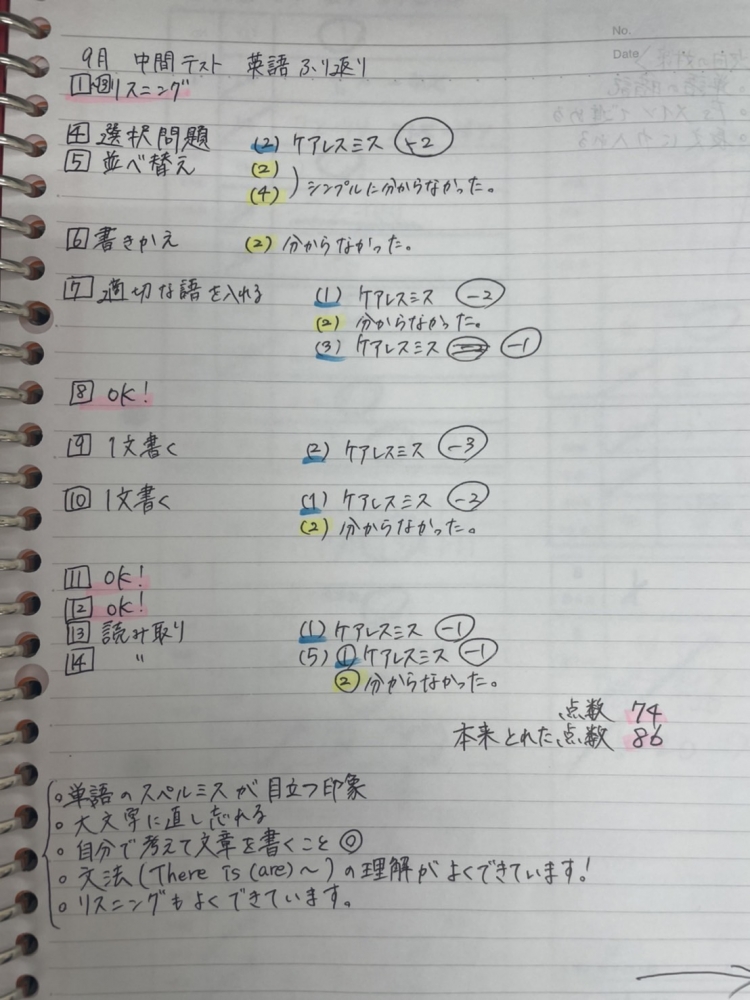 No.
Date
9月 中間テスト 英語 ふり返り
1~3 リスニング
4 選択問題 (2) ケアレスミス -2
5 並べ替え (2)
(4) シンプルに分からなかった。
6 書きかえ (2) 分からなかった。
7 適切な語を入れる (1) ケアレスミス -2
(2) 分からなかった。
(3) ケアレスミス -1
8 OK!
9 1文書く (2) ケアレスミス -3
10 1文書く (1) ケアレスミス -2
(2) 分からなかった。
11 OK!
12 OK!
13 読み取り (1) ケアレスミス -1
14 〃 (5) ① ケアレスミス -1
② 分からなかった。
点数 74
本来とれた点数 86
○単語のスペルミスが目立つ印象
○大文字に直し忘れる
○自分で考えて文章を書くこと ◎
○文法(There is (are)~)の理解がよくできています!
○リスニングもよくできています。